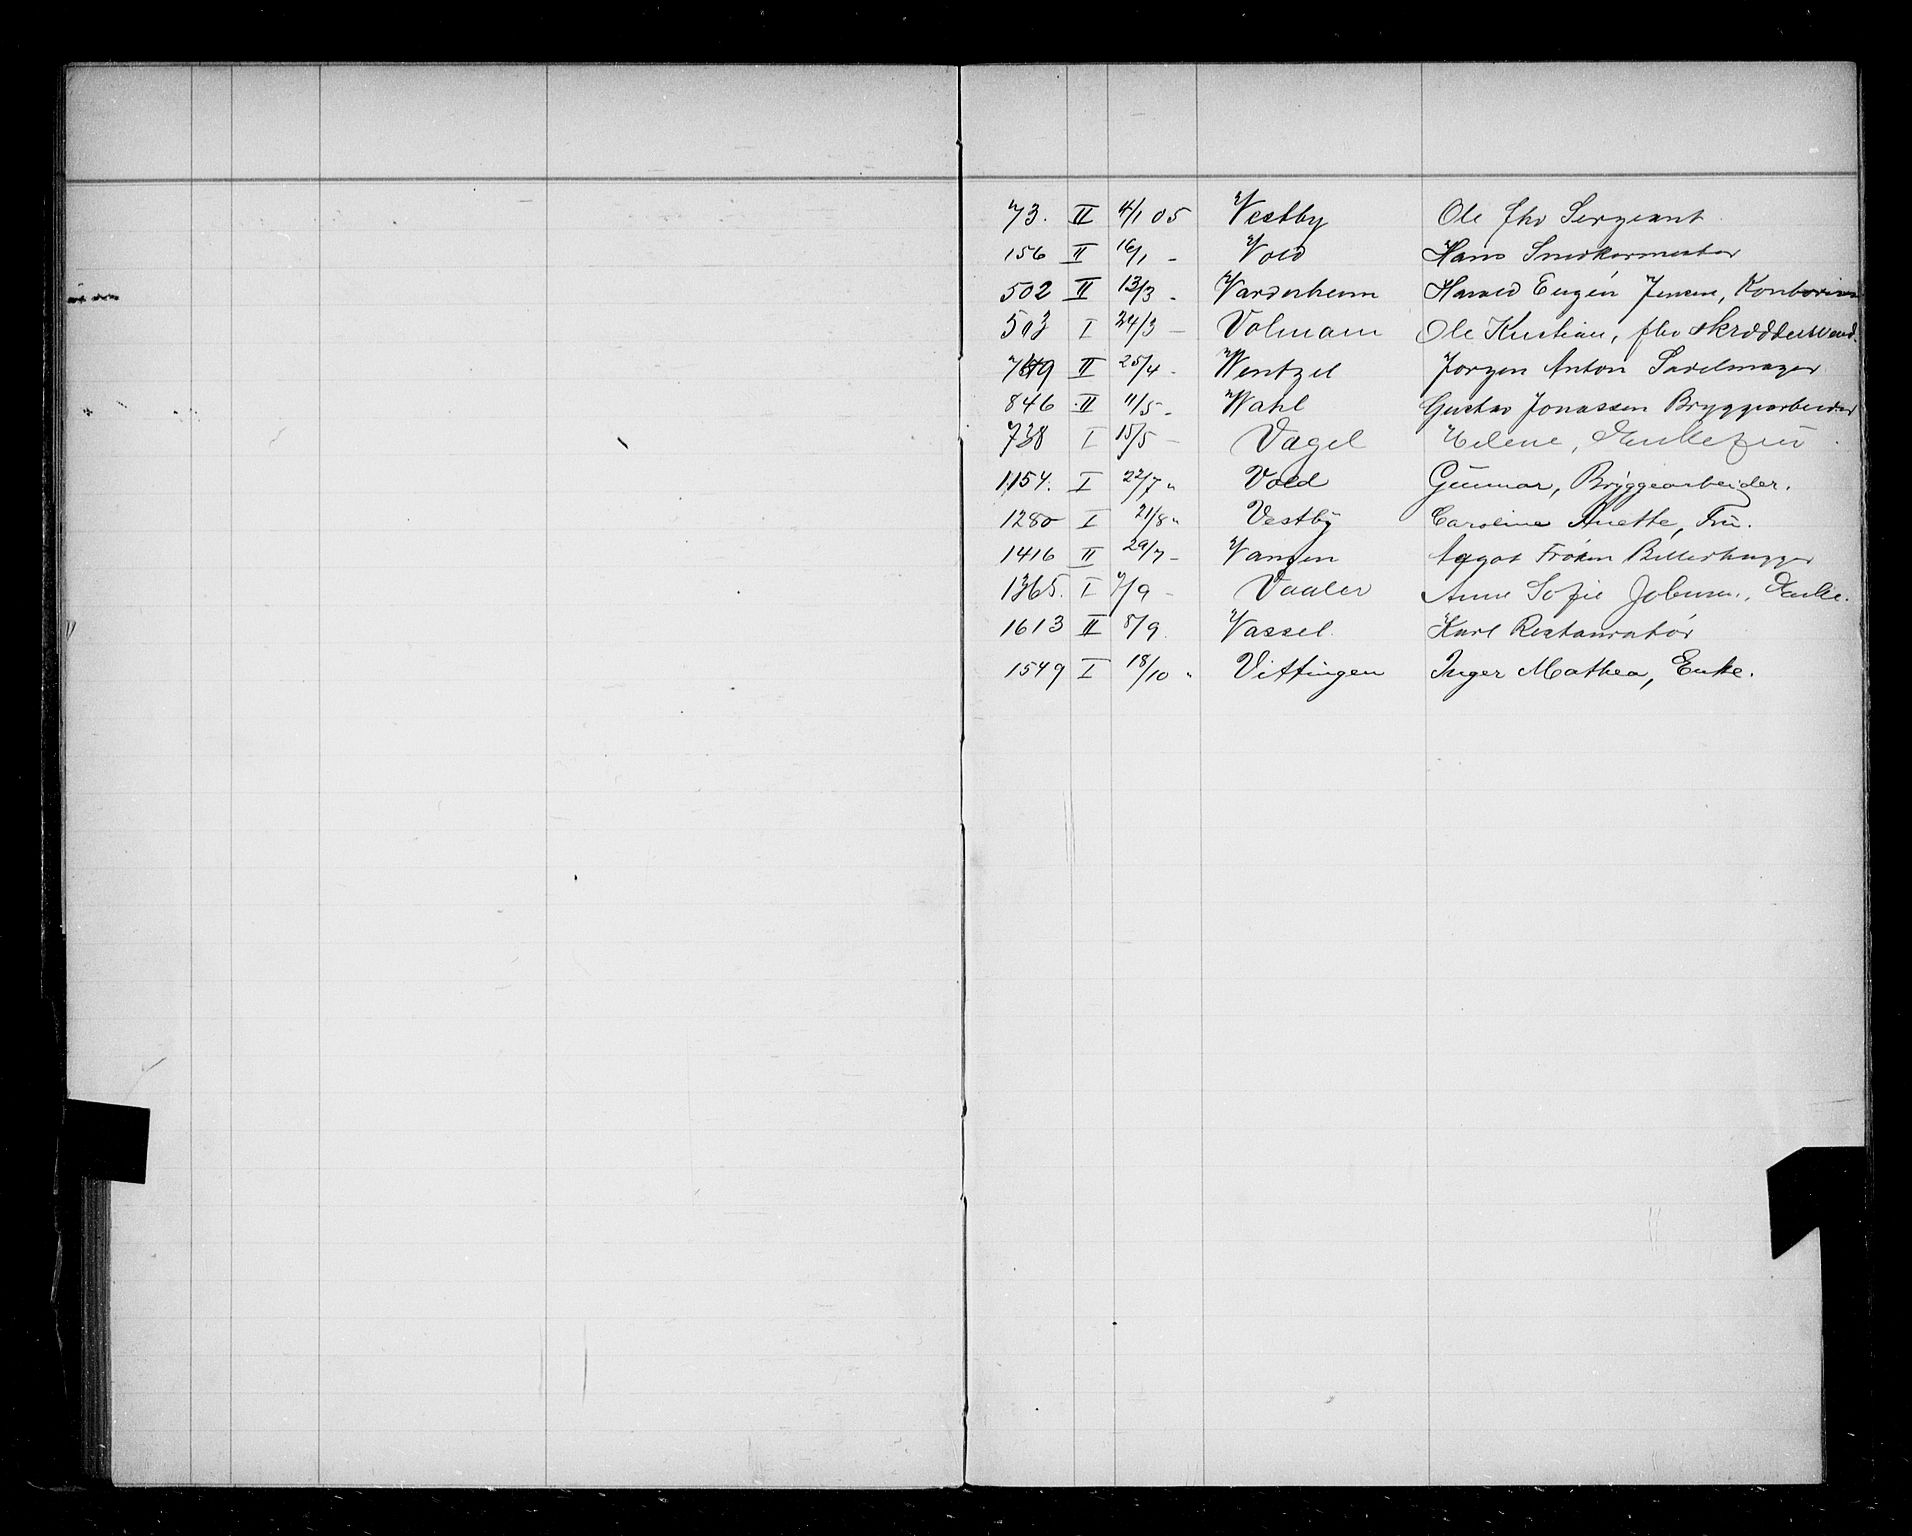 73. II 4/1 05 Vestby Ole fhv Sergeant
156 II 16/1 - Vold Hans Snedkermester
502 II 13/3 - Vardenheim Harald Eugén Jensen, Kontorist
503 I 24/3 - Volmann Ole Kristian, fhv Skrædersvend.
749 II 25/4 - Wentzel Jørgen Anton Sadelmager
846 II 11/5 - Wahl Gustav Jonassen Bryggearbeider
738 I 15/5 - Vagel Helene, Enkefru
1154. I 22/7 " Vold Gunnar, Bryggearbeider.
1280 I 21/8 " Vestby Caroline Anette, Fru.
1416 II 29/7 - Vangen Aagot Frøken Billedhugger
1365. I 7/9 - Vaaler Anne Sofie, Enke.
1613 II 8/9. Vassel. Karl Restauratør
1549 I 18/10 " Vittingen Inger Mathea, Enke.